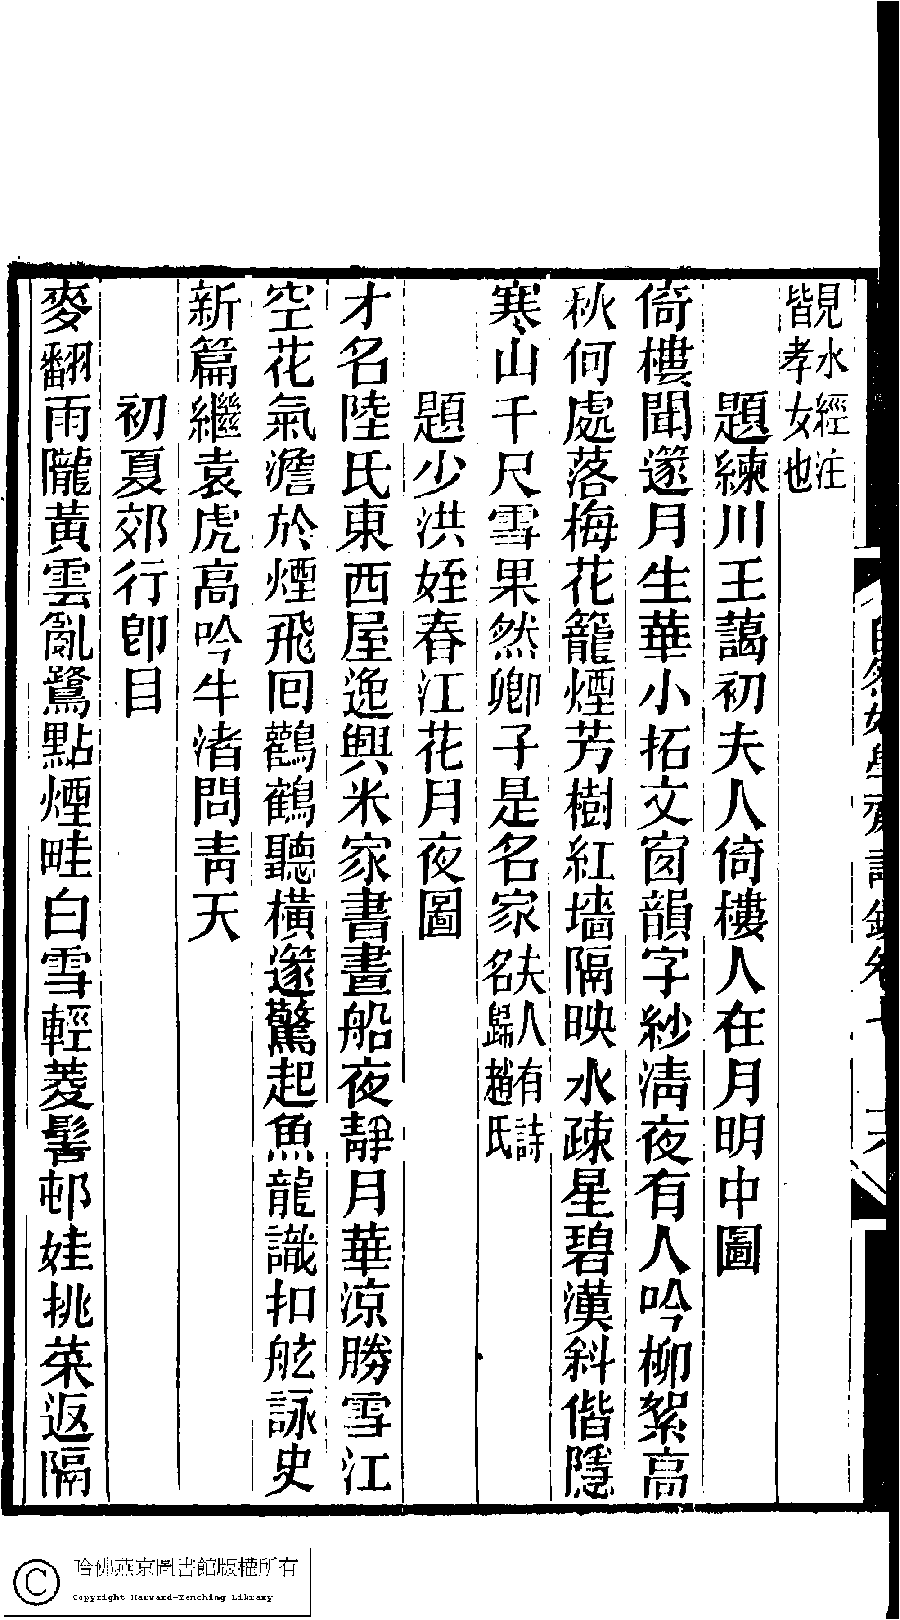 見水經注
皆孝女也
題練川王藹初夫人倚樓人在月明中圖
倚樓聞邃月生華小拓文窗韻字紗淸夜有人吟柳絮高
秋何處落梅花籠煙芳樹紅墻隔映水疎星碧漢斜偕隱
寒山千尺雪果然卿子是名家夫人有詩
名歸趙氏
題少洪姪春江花月夜圖
才名陸氏東西屋逸興米家書畫船夜靜月華涼勝雪江
空花氣澹於煙飛囘鸛鶴聽橫邃驚起魚龍識扣舷詠史
新篇繼袁虎高吟牛渚問靑天
初夏郊行卽目
麥翻雨隴黃雲亂鷺點煙畦白雪輕菱髻邨娃挑菜返隔
哈佛燕京圖書館版權所有
Copyright Harvard-Yenching Library